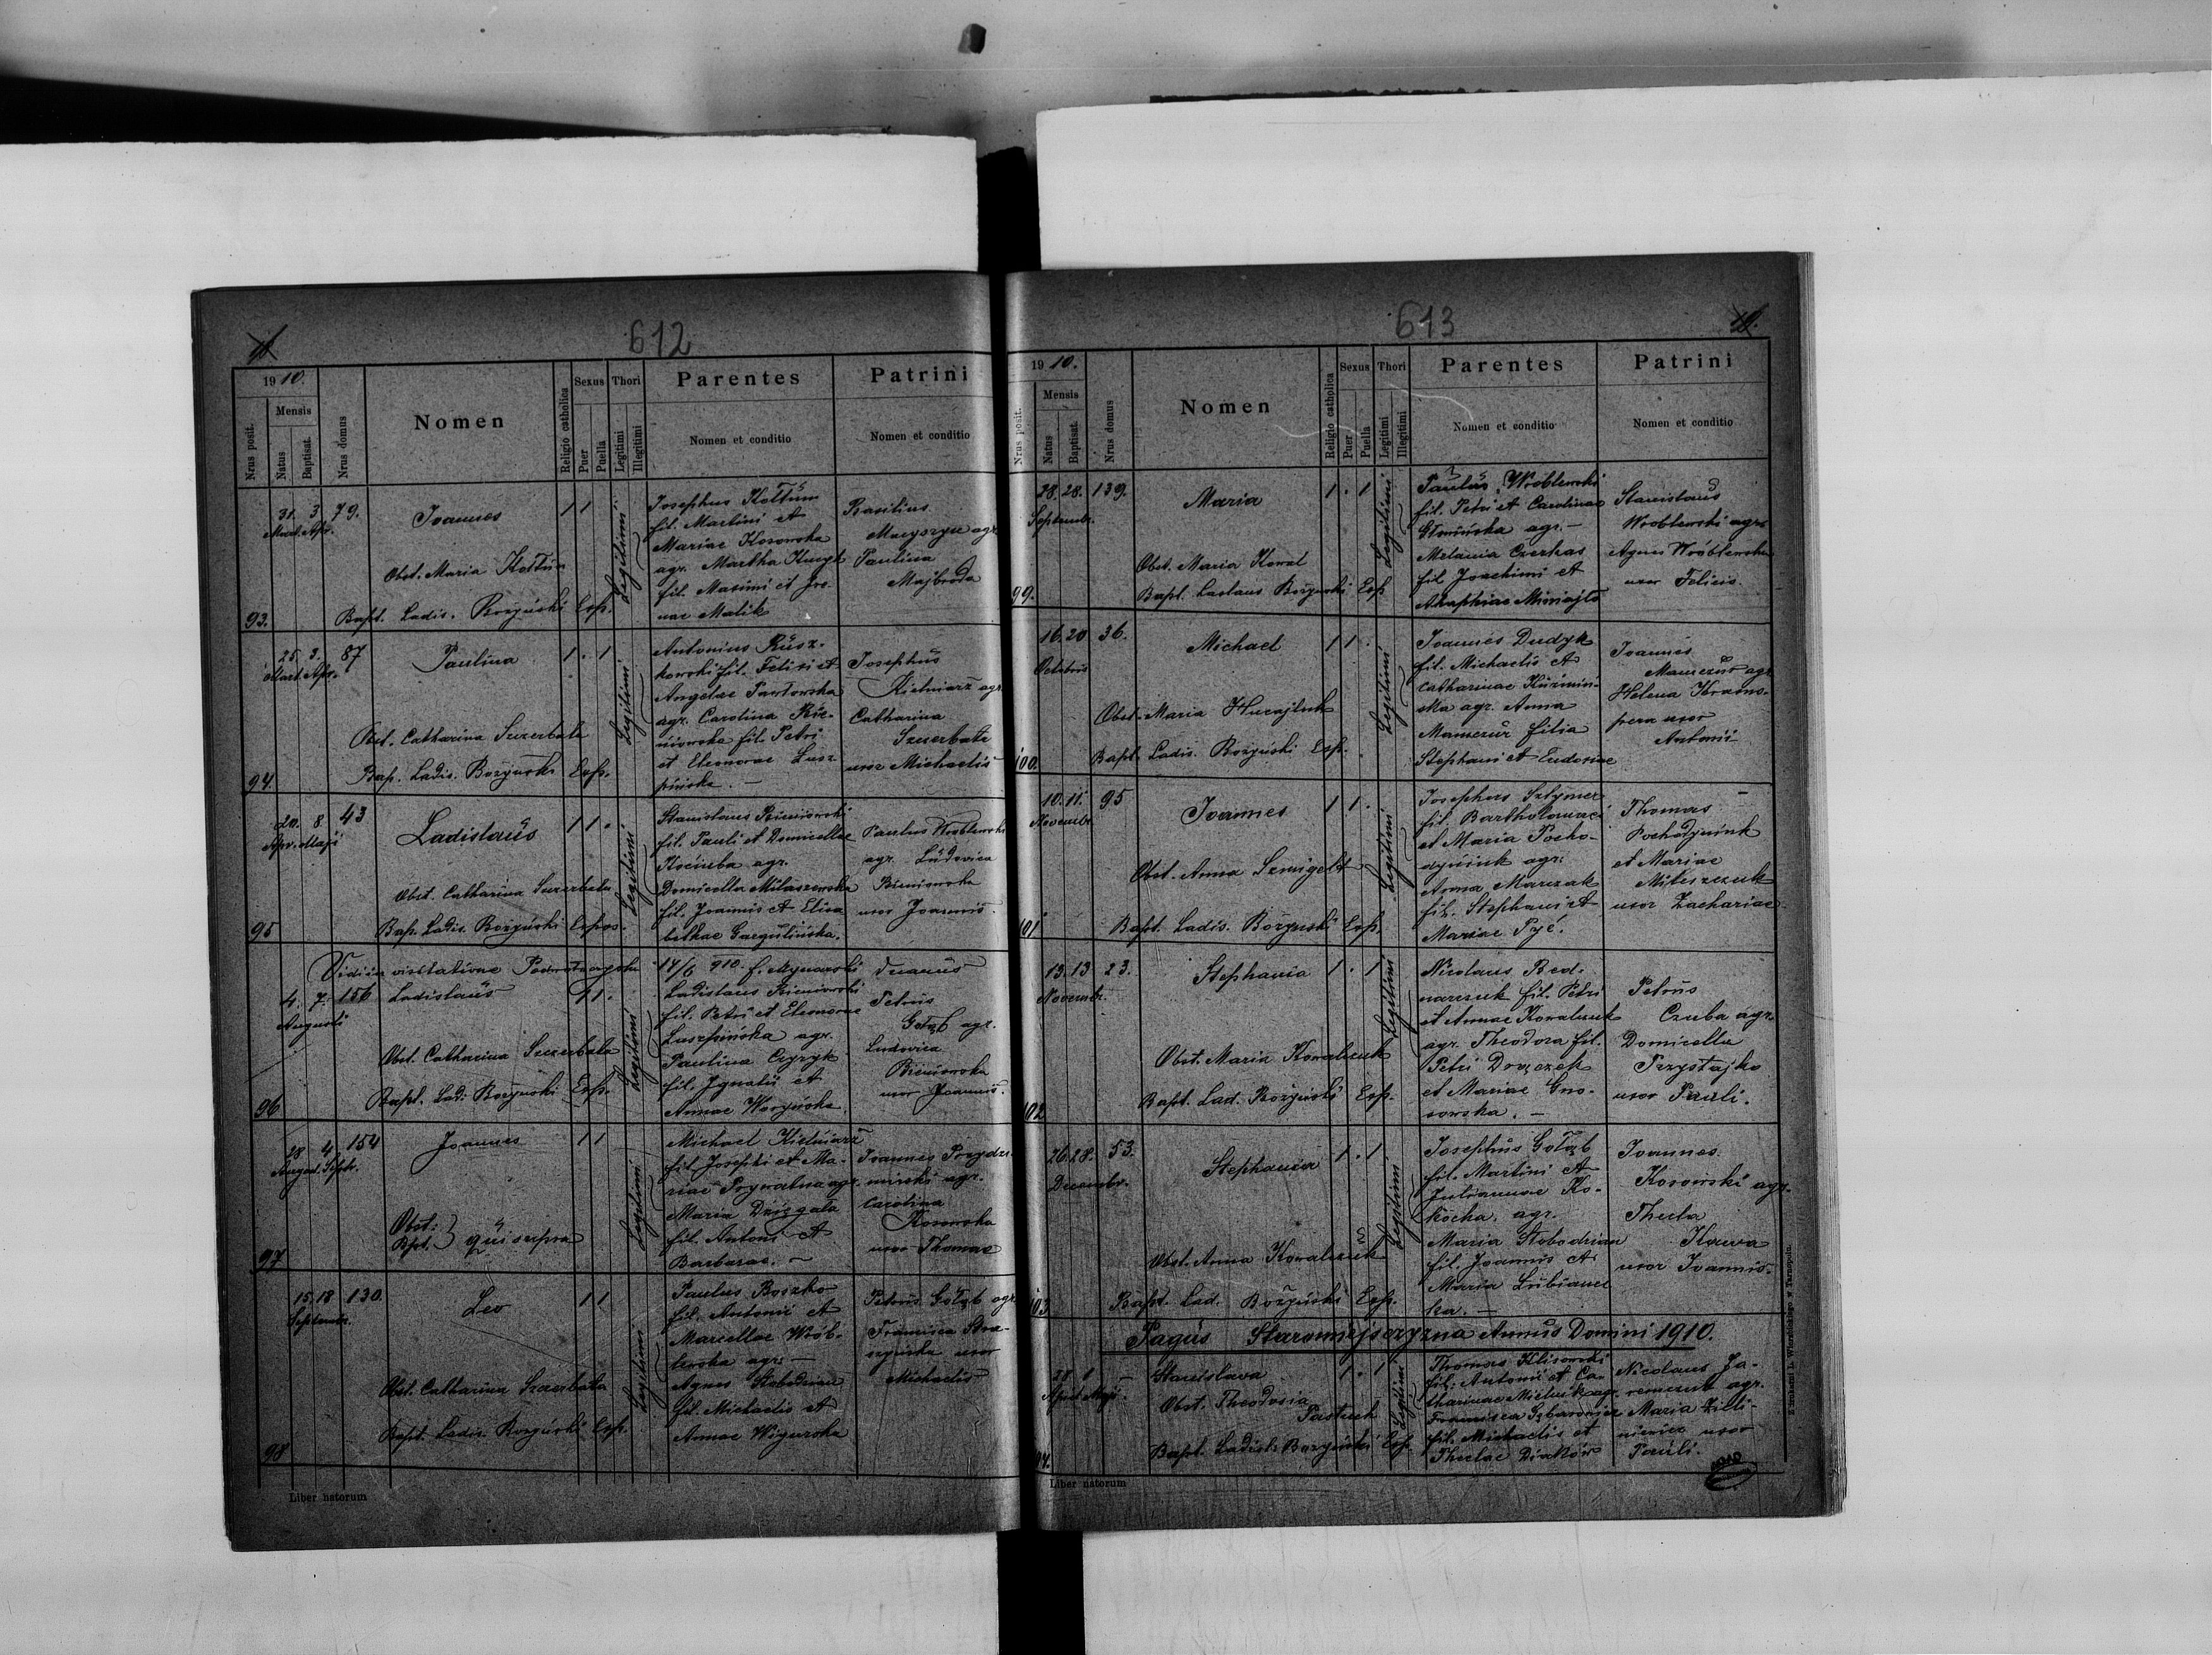 612
19 10.
Nrus posit.
Mensis
Natus
Baptisat.
Nrus domus
Nomen
Religio catholica
Sexus
Puer
Puella
Thori
Legitimi
Illegitimi
Parentes
Nomen et conditio
Patrini
Nomen et conditio
93.
31. 3. 79.
Mart. Apr.
Joannes
1 1
Obst. Maria Kołtun
Bapt. Ladis. Bożyński Exp.
Legitimi
Josephus Kołtun
fil. Martini et
Mariae Kosowska
agr. Martha
fil. Maximi et
Malik
Basilius
agr.
Paulina
Majbroda
94.
25. 3. 87
Mart. Apr.
Paulina
1 . 1
Obst. Catharina Szczerbata
Bap. Ladis. Bożyński Exp.
Legitimi
Antonius Rusz-
kowski fil. Felici et
Angelae Pawłowska
agr. Carolina Bie-
niowska fil. Petri
et Eleonorae Lusz-
pińska. —
Josephus
Kielniarz agr.
Catharina
Szczerbata
uxor Michaelis
95
20. 8. 43
Apr. Maji
Ladislaus
1 1 .
Obst. Catharina Szczerbata
Bap. Ladis. Bożyński Expos.
Legitimi
Stanislaus Bieniowski
fil. Pauli et Domicellae
Kociuba agr.
Domicella Milaszewska
fil. Joannis et Elisa
bethae Gargulińska.
Paulus Wróblewski
agr. Ludovica
Bieniowska
uxor Joannis.
Vidi in visitatione
17/6 910.
96
4. 7. 156
Augusti
Ladislaus
1 1 .
Obst. Catharina Szczerbata
Bapt. Ladi. Bożyński Exp.
Legitimi
Ladislaus Bieniowski
fil. Petri et Eleonorae
Luszpińska agr.
Paulina Czyzyk
fil. Ignatii et
Annae
Petrus
Gołąb agr.
Ludovica
Bieniowska
uxor Joannis.
97
28 4 154
August. Septr.
Joannes
1 1
Obst. }
Bpt. } qui supra
Legitimi
Michael Kielniarz
fil. Josephi et Ma-
riae Prywatna agr.
Maria Dziegała
fil. Antoni et
Barbarae. —
Joannes
agr.
Carolina
Kosowska
uxor Thomae
98
15. 18 130
Septembr.
Leo
1 1
Obst. Catharina Szczerbata
Bapt. Ladis. Bożyński Exp.
Legitimi
Paulus Boszko
fil. Antonii et
Marcellae Wrób-
lewska agr. —
Agnes Słobodzian
fil. Michaelis et
Annae Wigurska
Petrus Gołąb agr.
Francisca
uxor
Michaelis
Liber natorum
613
19 10.
Nrus posit.
Mensis
Natus
Baptisat.
Nrus domus
Nomen
Religio catholica
Sexus
Puer
Puella
Thori
Legitimi
Illegitimi
Parentes
Nomen et conditio
Patrini
Nomen et conditio
99.
28. 28. 139.
Septembr.
Maria
1 . 1
Obst. Maria Kowal
Bapt. Ladislaus Bożyński Exp.
Legitimi
Paulus Wróblewski
fil. Petri et Carolinae
agr. —
Melania Czerkas
fil. Joachimi et
Stanislaus
Wróblewski agr.
Agnes Wróblewska
uxor Felicis.
100.
16. 20 36.
Octobris
Michael
1 1 .
Obst. Maria Hucajluk
Bapt. Ladis. Bożyński Exp.
Legitimi
Joannes Dudyk
fil. Michaelis et
Catharinae Kuźmiń-
ska agr. Anna
Mamczur filia
Stephani et Eudoxiae
Joannes
Mamczur agr.
Helena
uxor
Antonii
101
10. 11. 95
Novembr.
Joannes
1 1 .
Obst. Anna Szmigelt
Bapt. Ladis. Bożyński Exp.
Legitimi
Josephus Sztymer
fil. Bartholomaei
et Maria Pocho-
dyniuk agr.
Anna Marczak
fil. Stephani et
Mariae Pyć.
Thomas
Pochodyniuk
et Mariae
Miliszczuk
uxor Zachariae.
102
13. 13 23.
Novembr.
Stephania
1 . 1
Obst. Maria Kowalczuk
Bapt. Lad. Bożyński Exp.
Legitimi
Nicolaus Bod-
narczuk fil. Petri
et Annae Kowalczuk
agr. Theodora fil.
Petri
et Mariae Gno-
sowska. —
Petrus
Czuba agr.
Domicella
Przystajko
uxor Pauli.
103
26. 28. 53.
Decembr.
Stephania
1 . 1
Obst. Anna Kowalczuk
Bapt. Lad. Bożyński Exp.
Legitimi
Josephus Gołąb
fil. Martini et
Julianae Ko-
kocha. agr.
Maria Słobodzian
fil. Joannis et
Maria Lubianec
ka. —
Joannes
Kosowski agr.
Thecla
Kawa
uxor Joannis.
Pagus Staromiejszczyzna Annus Domini 1910.
28 1 —
April Maji
Stanislava
1 . 1
Obst. Theodosia
Pastuch
Bapt. Ladisl. Bożyński Exp.
Legitimi
Thomas Klisowski
fil. Antonii et Ca-
tharinae Mielnik agr.
Francisca
fil. Michaelis et
Theclae Diaków
Nicolaus Ja-
remczuk agr.
Maria Zieli-
niewicz uxor
Pauli.
Liber natorum
Z drukarni L. Wierzbickiego w Tarnopolu.